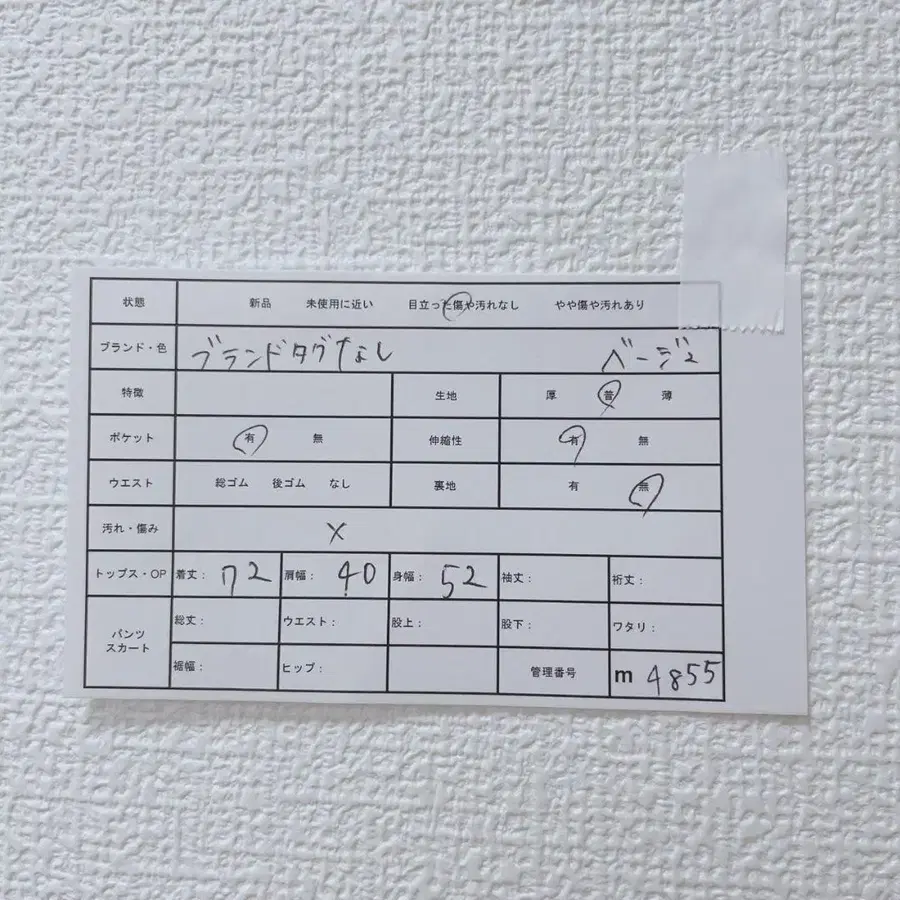 状態 新品 未使用に近い 目立った傷や汚れなし やや傷や汚れあり
ブランド・色 ブランドタグなし ベージュ
特徴 生地 厚 普 薄
ポケット 有 無 伸縮性 有 無
ウエスト 総ゴム 後ゴム なし 裏地 有 無
汚れ・傷み ×
トップス・OP 着丈: 72 肩幅: 40 身幅: 52 袖丈: 裄丈:
パンツ スカート 総丈: ウエスト: 股上: 股下: ワタリ:
裾幅: ヒップ: 管理番号 m 4855